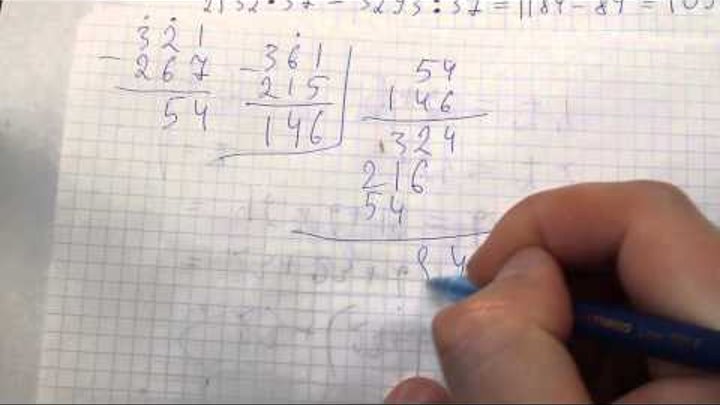 2132 : 37 - 3293 : 37 = 1184 - 89 =
321
- 267
54
- 361
215
146
54
146
324
216
54
84